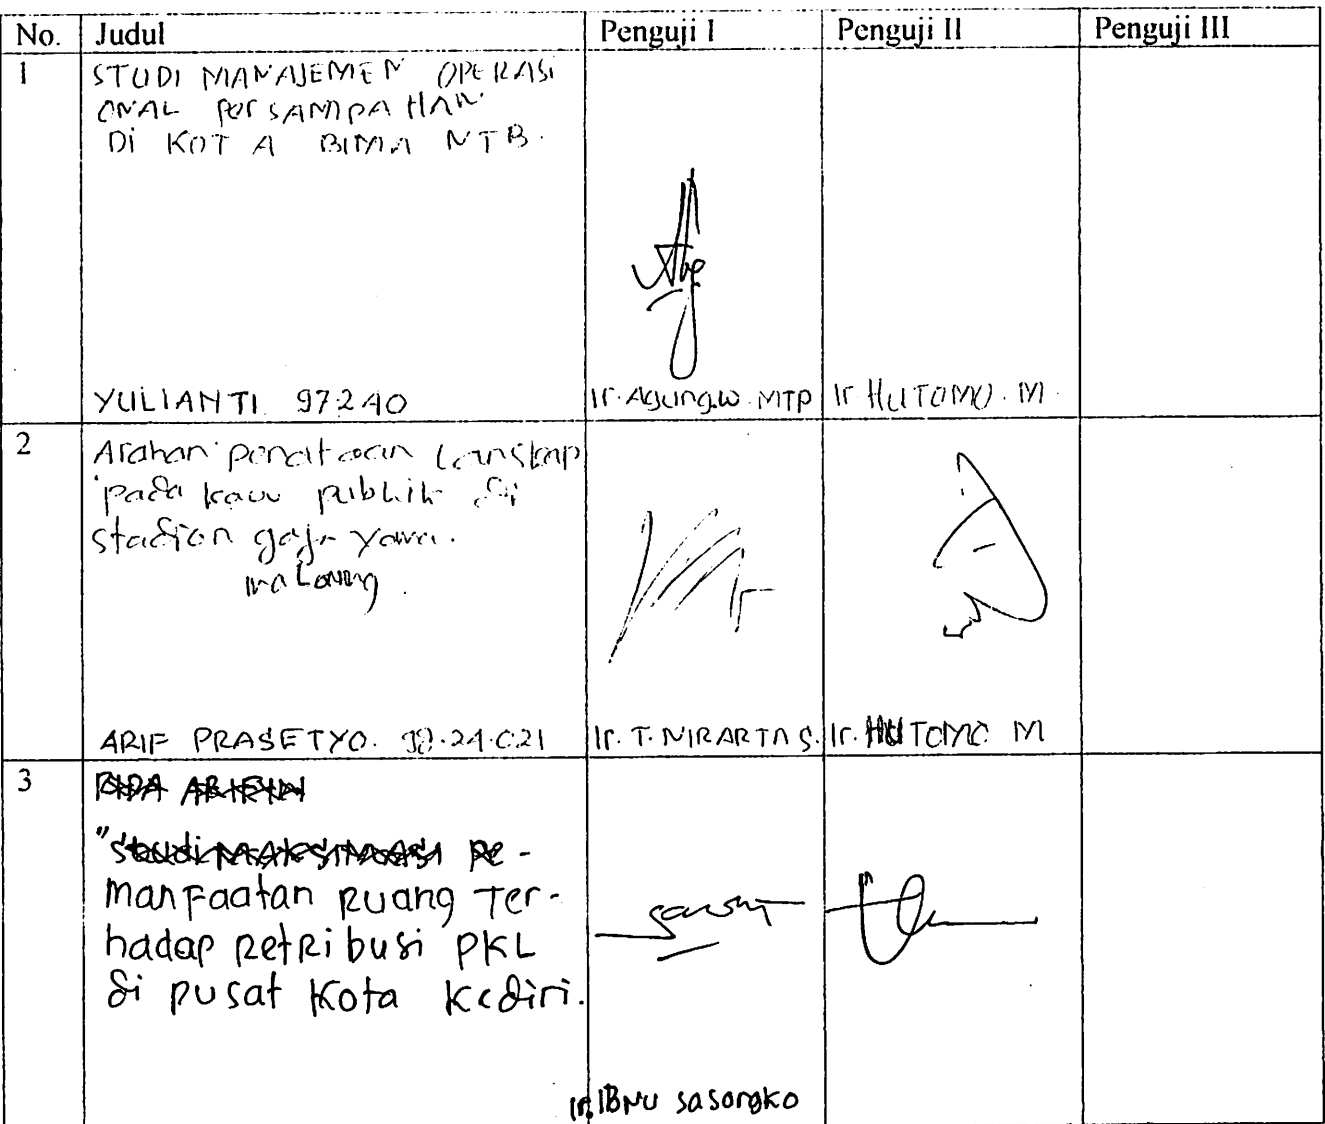 No. Judul Penguji I Penguji II Penguji III
1
STUDI MANAJEMEN OPERASI
ONAL PerSAMPAHAN
Di KOTA BIMA NTB.
YULIANTI 97240 Ir. Agung.W. MTP Ir HUTOMO. M.
2
Arahan penataan Lanskap
pada kaw publik di
stadion gaja yana.
maLang.
ARIF PRASETYO. 98.24.021 Ir. T. NIRARTA S. Ir. HUTOMO M
3
ARIFIN
"Studi MAKSIMASI Pe-
manFaatan Ruang Ter-
hadap RetRibusi PKL
di pusat Kota Kediri.
Ir. IBNU sasongko